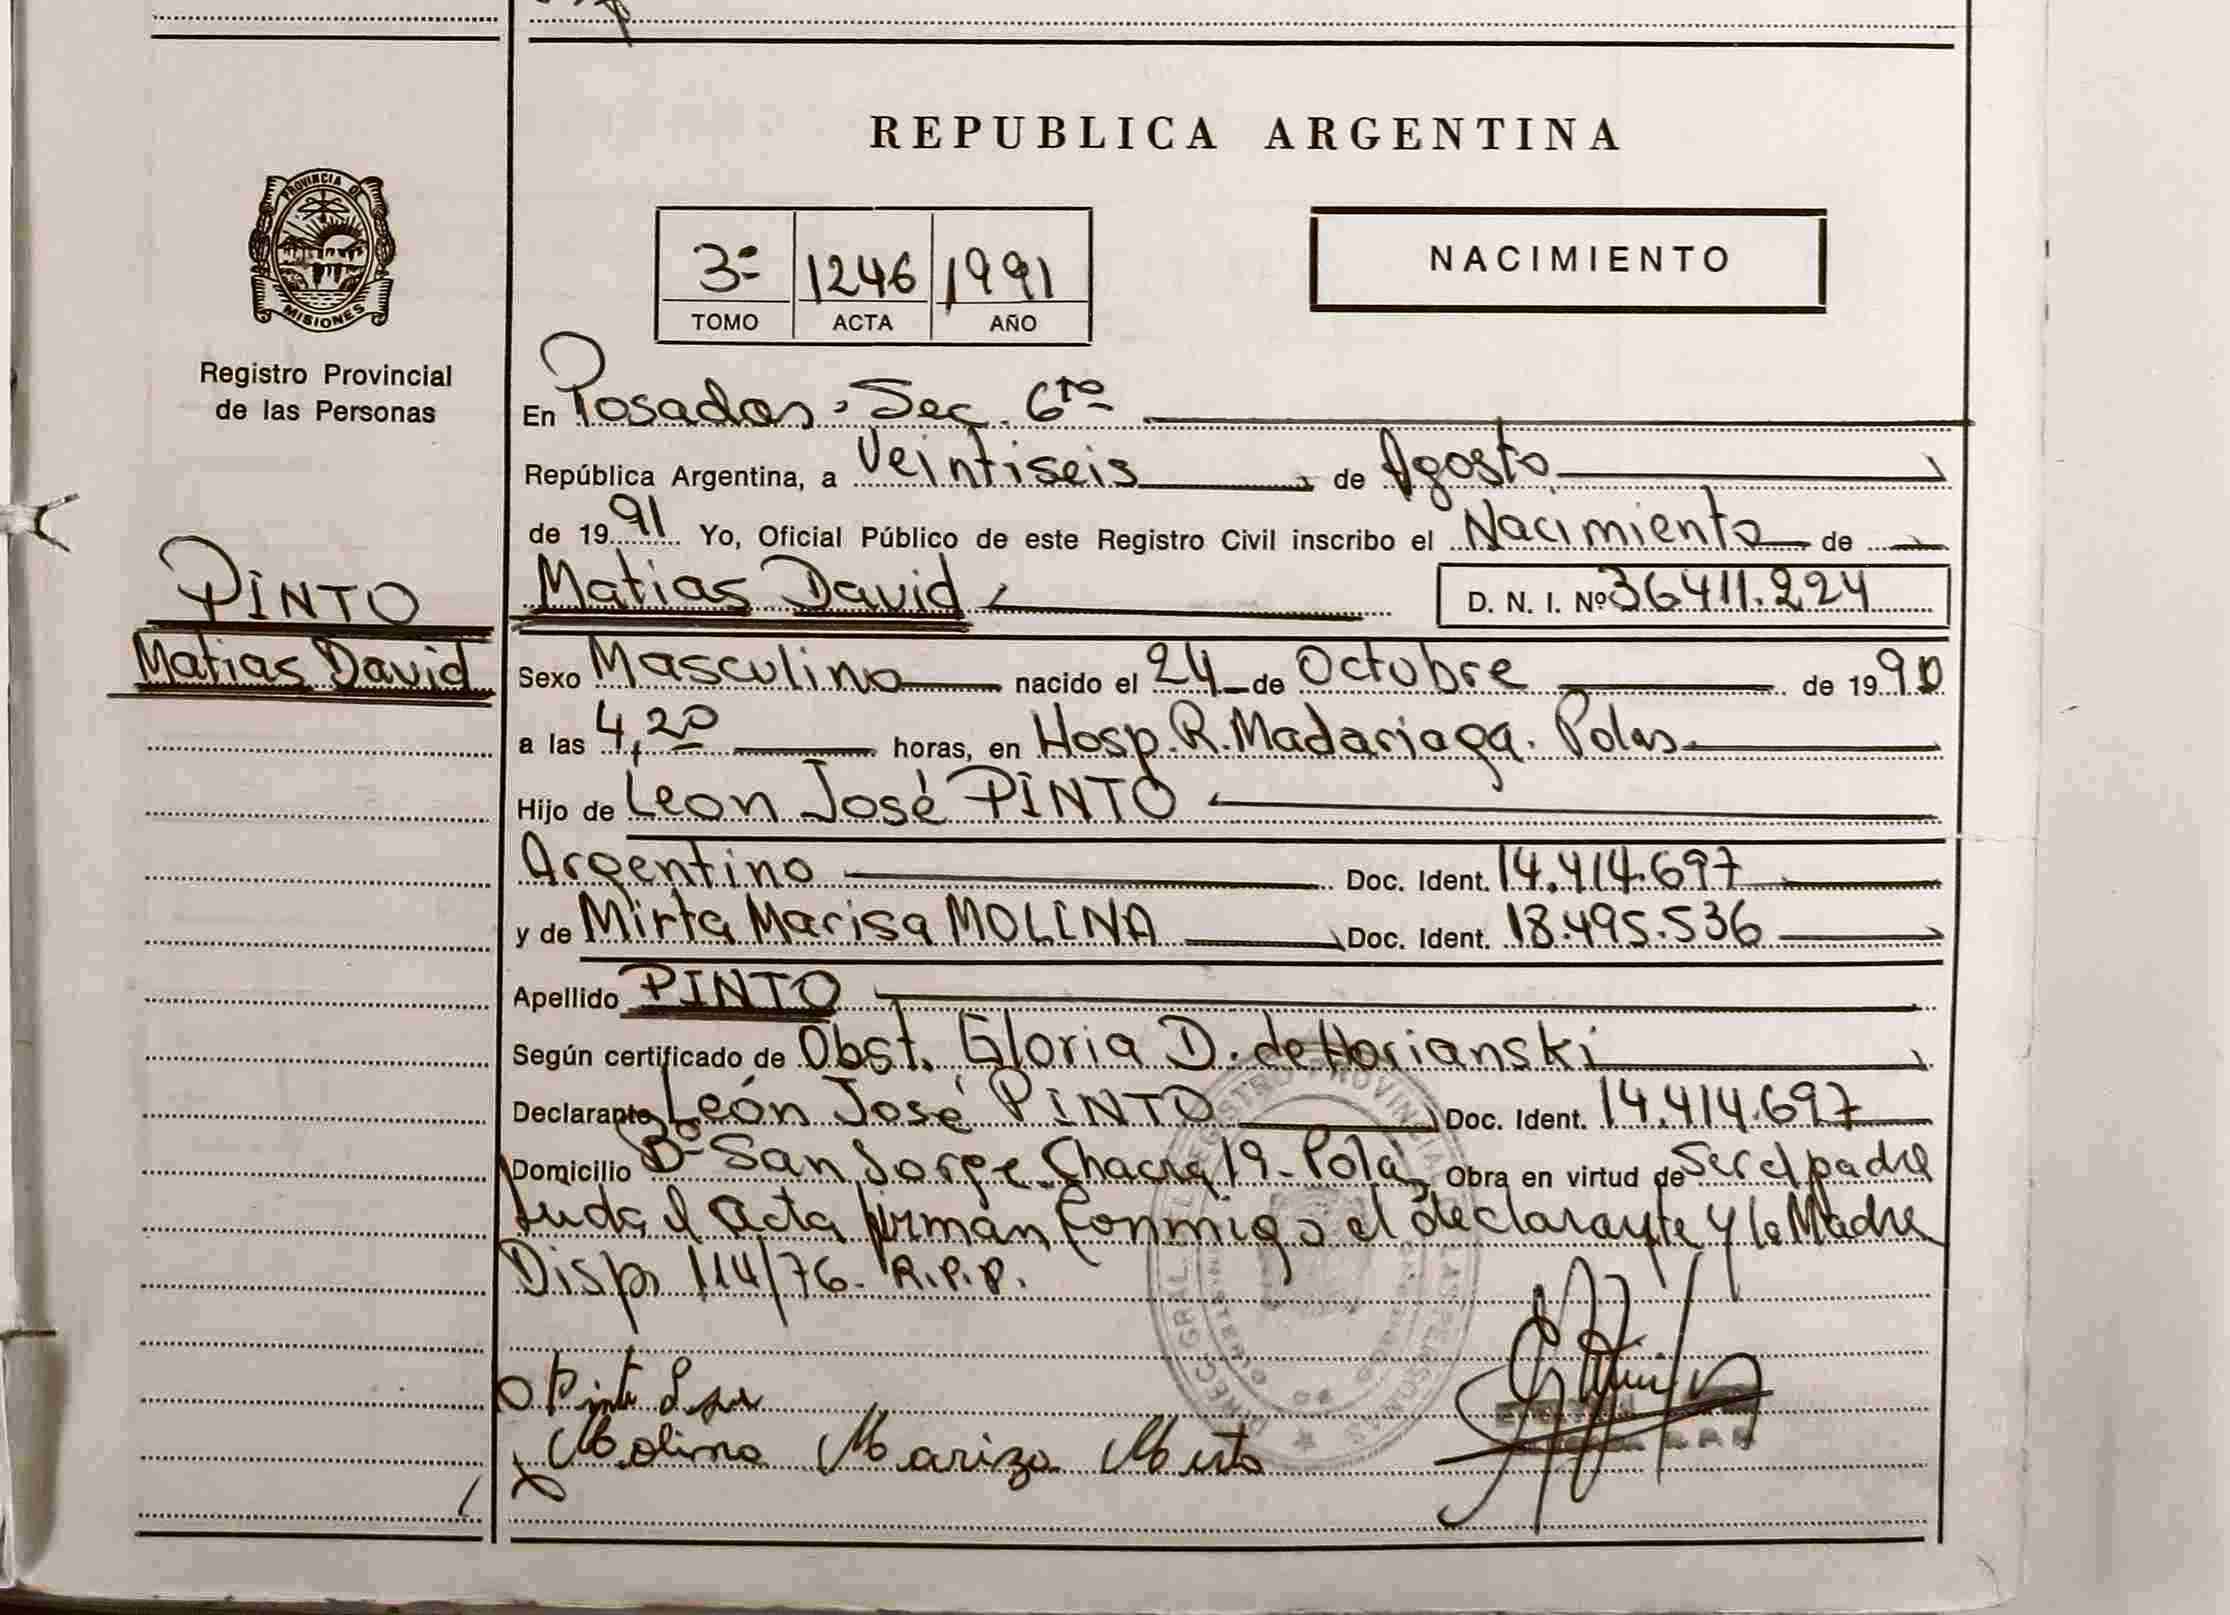 REPUBLICA ARGENTINA
PROVINCIA DE
MISIONES
Registro Provincial
de las Personas
3º 1246 1991
TOMO ACTA AÑO
NACIMIENTO
PINTO
Matias David
En Posadas, Sec. 6ta
República Argentina, a Veintiseis de Agosto
de 1991 Yo, Oficial Público de este Registro Civil inscribo el Nacimiento de
Matias David D. N. I. Nº 36411.224
Sexo Masculino nacido el 24 de Octubre de 1990
a las 4,20 horas, en Hosp. R. Madariaga. Pdas.
Hijo de Leon José PINTO
Argentino Doc. Ident. 14.414.697
y de Mirta Marisa MOLINA Doc. Ident. 18.495.536
Apellido PINTO
Según certificado de Obst. Gloria D. de Horianski
Declarante León José PINTO Doc. Ident. 14.414.697
Domicilio Bº San Jorge Chacra 19- Obra en virtud de Ser el padre
el acta firman conmigo el declarante y la Madre
Disp. 114/76. R.P.P.
Pinto
Molina Mariza Mirta